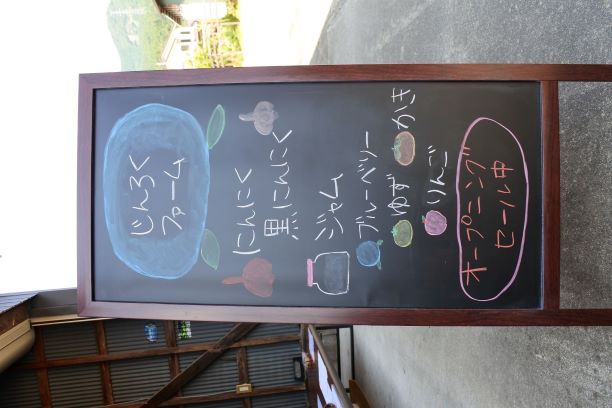 じんろく
ファーム
にんにく
黒にんにく
ジャム
ブルーベリー
ゆず かき
りんご
オープニング
セール中